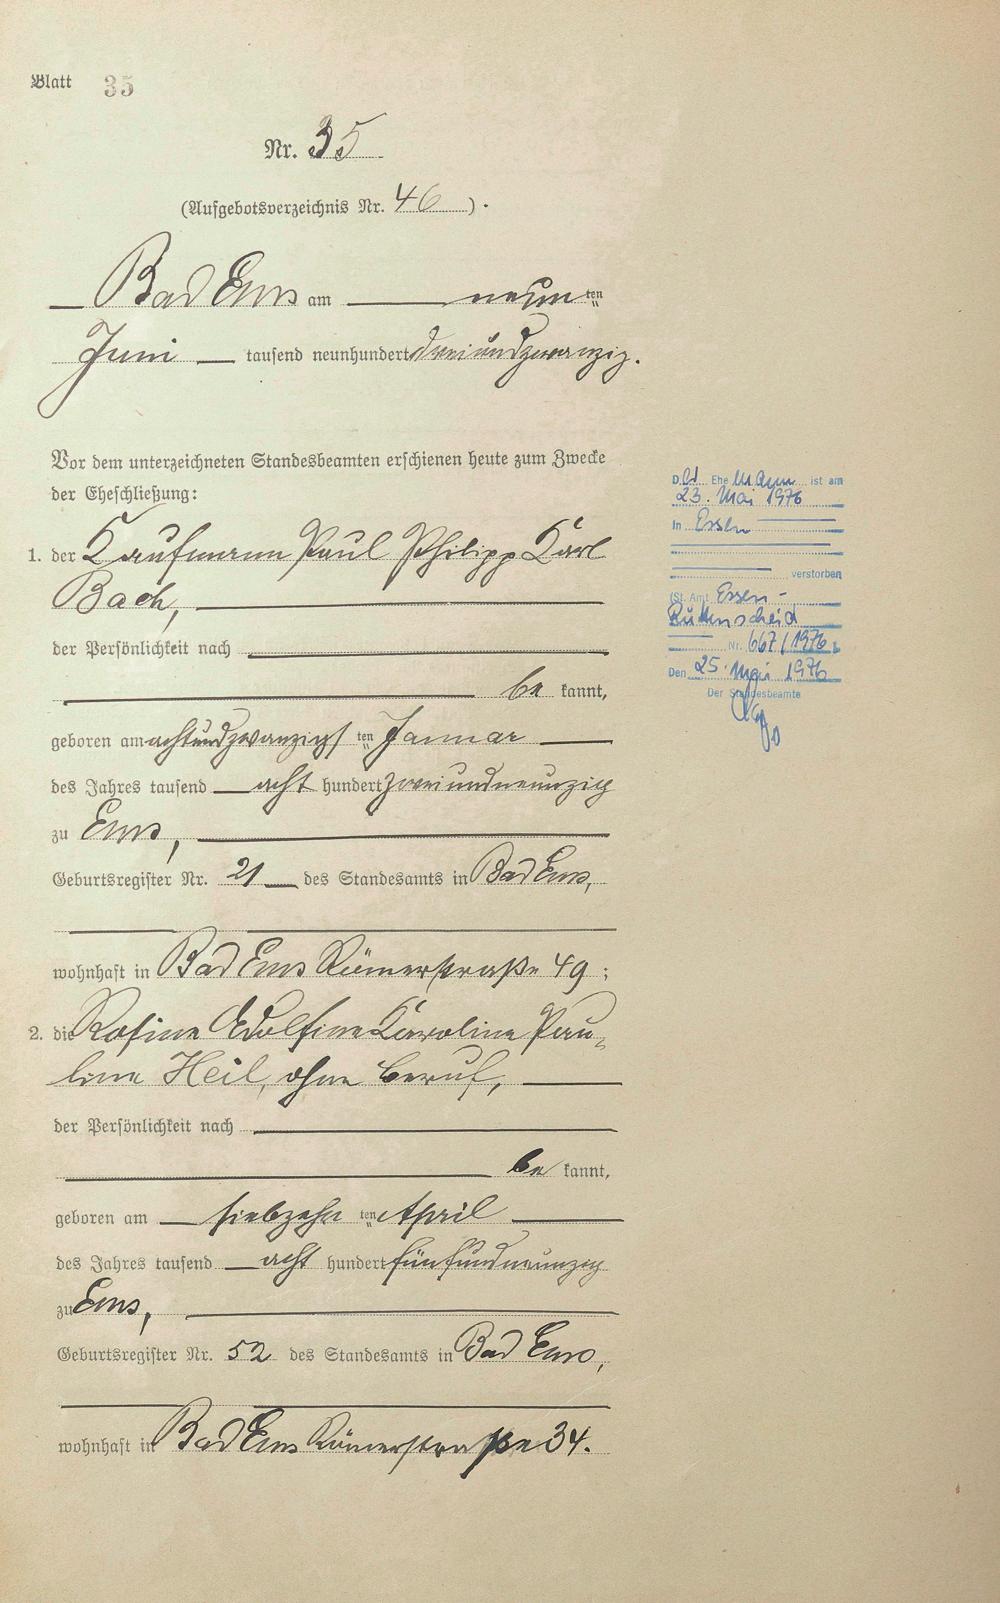 Blatt 35
Nr. 35
(Aufgebotsverzeichnis Nr. 46).
Bad Ems am neun ten
Juni tausend neunhundert dreiundzwanzig.
Vor dem unterzeichneten Standesbeamten erschienen heute zum Zwecke
der Eheschließung:
1. der Kaufmann Paul Philipp Karl
Bach,
der Persönlichkeit nach
be kannt,
geboren am achtundzwanzigs ten Januar
des Jahres tausend acht hundert zweiundneunzig
zu Ems,
Geburtsregister Nr. 21 des Standesamts in Bad Ems,
wohnhaft in Bad Ems Römerstraße 49;
2. die Rosine Adolfine Karoline Pau-
line Heil, ohne Beruf,
der Persönlichkeit nach
be kannt,
geboren am siebzehn ten April
des Jahres tausend acht hundert fünfundneunzig
zu Ems,
Geburtsregister Nr. 52 des Standesamts in Bad Ems,
wohnhaft in Bad Ems Römerstraße 34.
D er Ehe mann ist am
23. Mai 1976
in Essen
verstorben
(St. Amt Essen-
Rüttenscheid
Nr. 667/1976
Den 25. Mai 1976
Der Standesbeamte